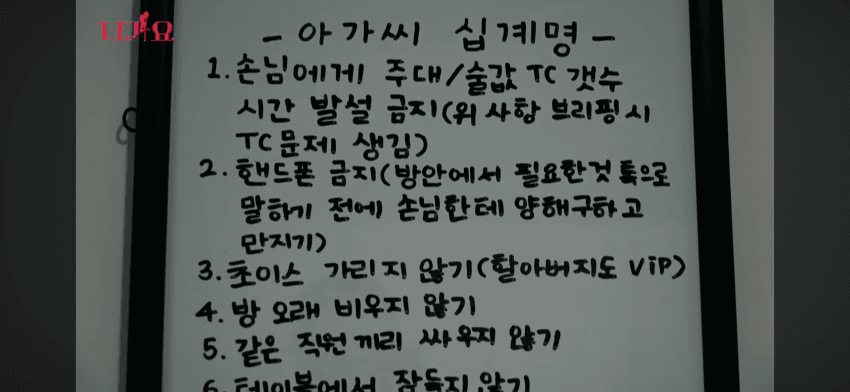 나가요
- 아가씨 십계명 -
1. 손님에게 주대/술값 TC 갯수
시간 발설 금지(위 사항 브리핑시
TC문제 생김)
2. 핸드폰 금지(방안에서 필요한것 톡으로
말하기 전에 손님한테 양해구하고
만지기)
3. 초이스 가리지 않기(할아버지도 VIP)
4. 방 오래 비우지 않기
5. 같은 직원끼리 싸우지 않기
6. 테이블에서 잠들지 않기